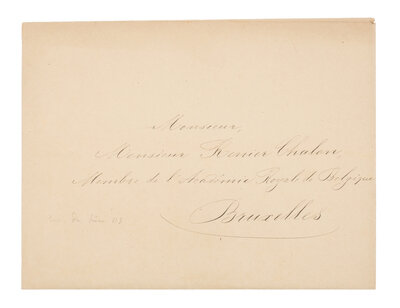 Monsieur,
Monsieur Renier Chalon,
Membre de l'Académie Royale de Belgique
Bruxelles